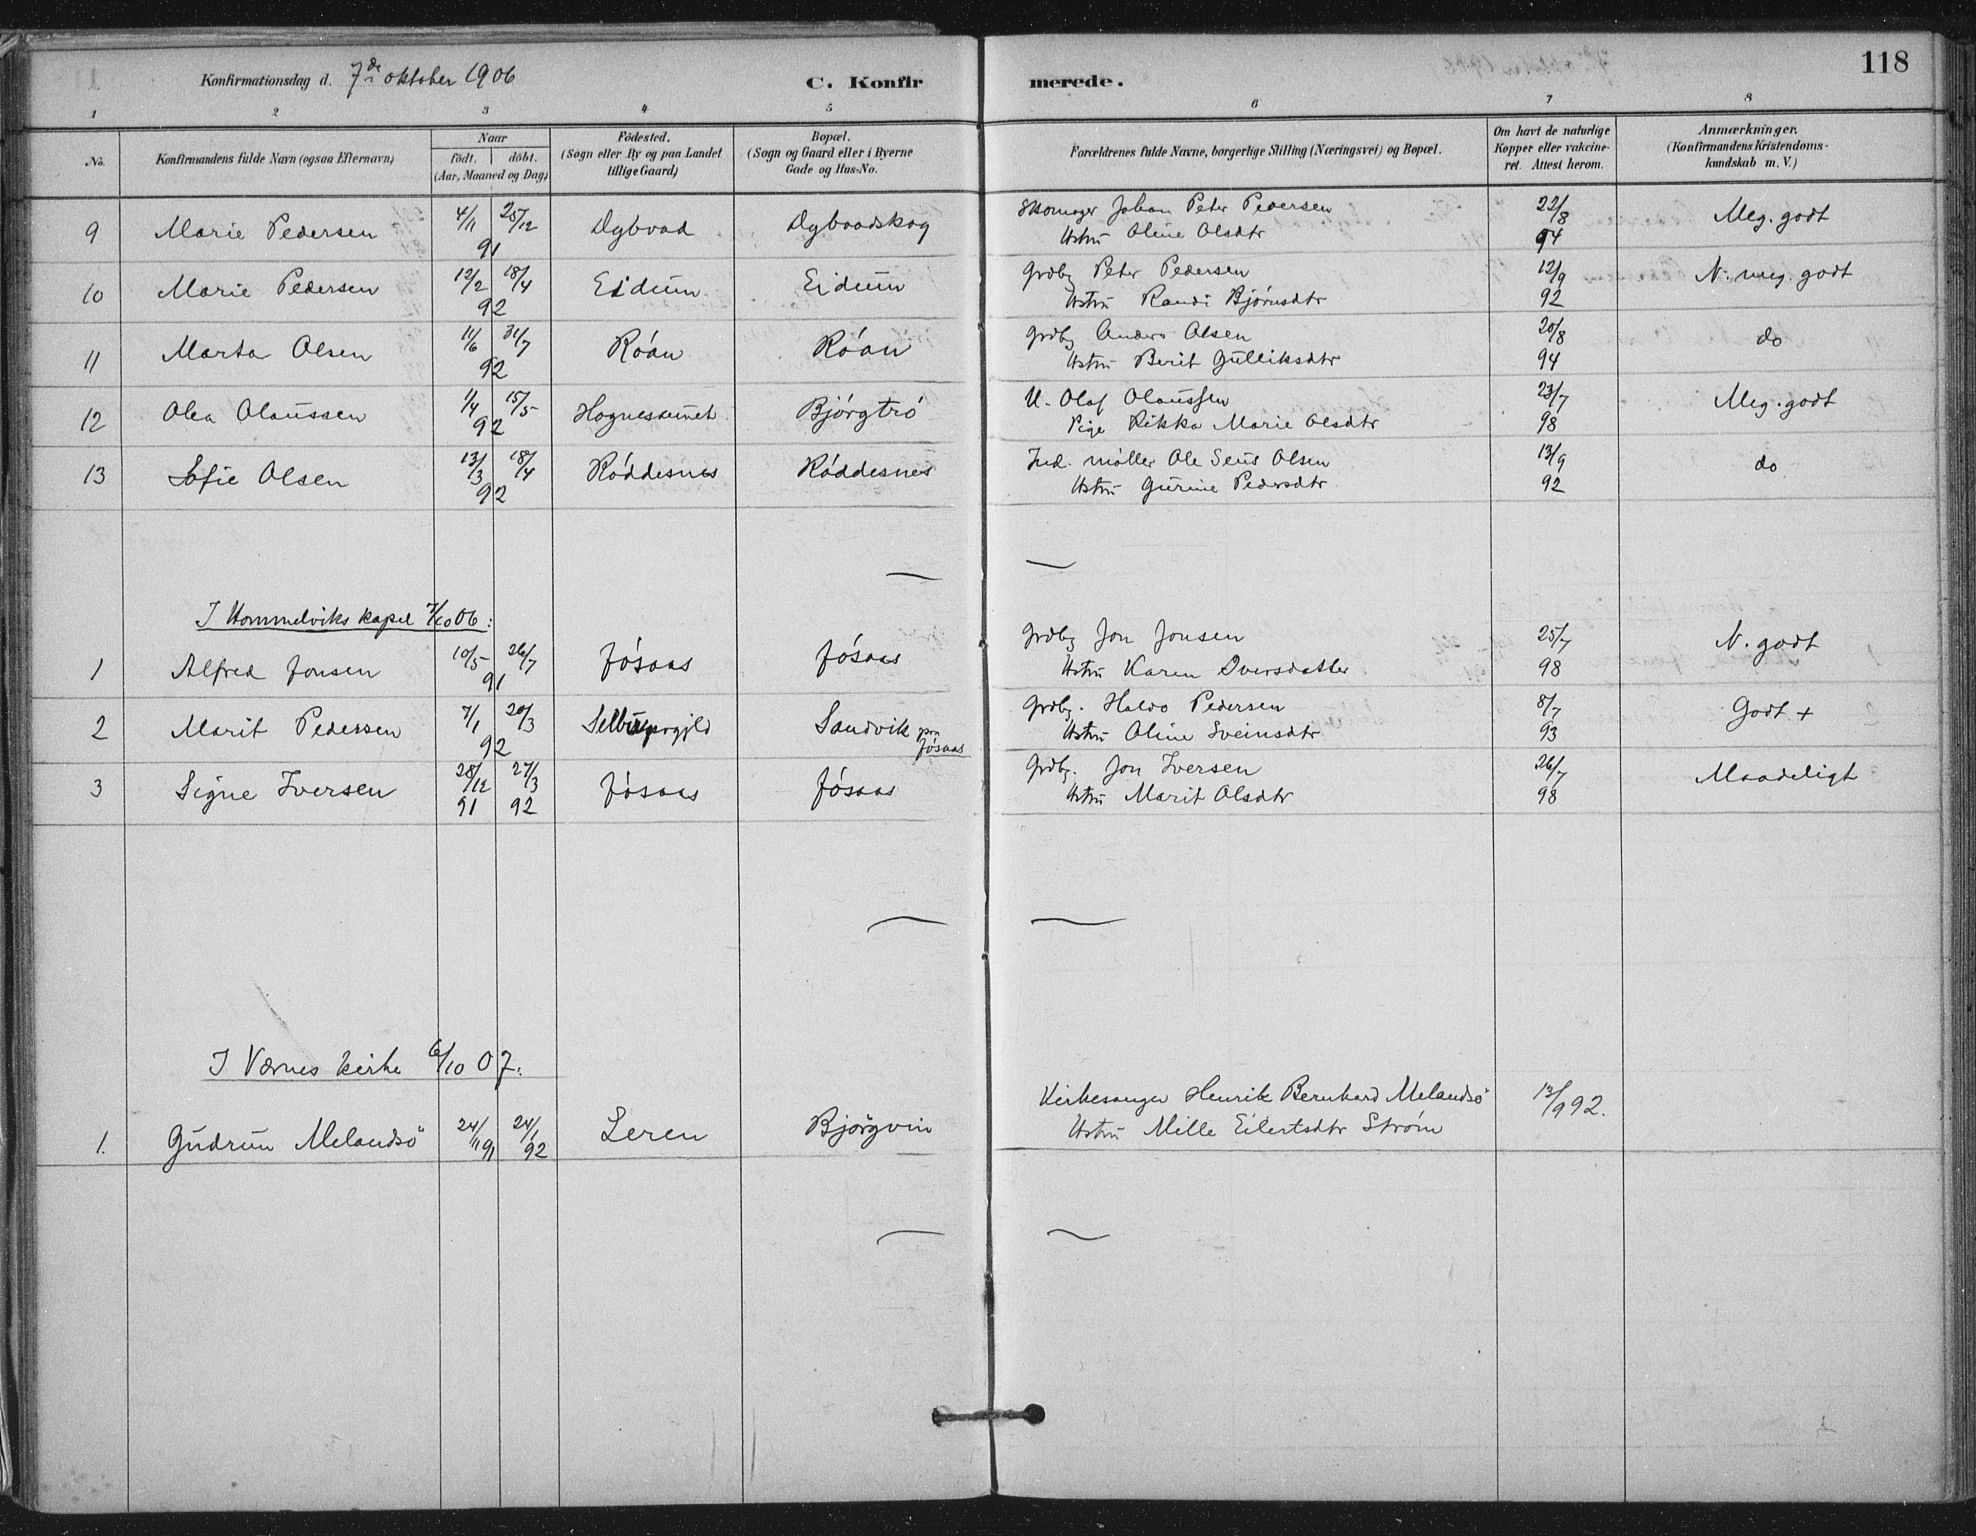 Konfirmationsdag d. 7de oktober 1906
C. Konfirmerede.
118
1 2 3 4 5 6 7 8
No.
Konfirmandens fulde Navn (ogsaa Efternavn)
Naar
födt. | döbt.
(Aar, Maaned og Dag)
Födested.
(Sogn eller By og paa Landet
tillige Gaard)
Bopæl.
(Sogn og Gaard eller i Byerne
Gade og Hus-No.
Forældrenes fulde Navne, borgerlige Stilling (Næringsvei) og Bopæl.
Om havt de naturlige
Kopper eller vakcine-
ret. Attest herom.
Anmærkninger.
(Konfirmandens Kristendoms-
kundskab m. V.)
9 Marie Pedersen 4/11 25/12 91 Dybvad Dybvadskog Skomager Johan Peter Pedersen 22/8 94 Meg. godt
Ustru Oline Olsdtr
10 Marie Pedersen 12/2 18/4 92 Eidum Eidum Grdbg Peter Pedersen 12/9 92 N. meg. godt
Ustru Randi Bjørnsdtr
11 Marta Olsen 11/6 31/7 92 Róan Róan Grdbg Anders Olsen 20/8 94 do
Ustru Berit Gulliksdtr
12 Olea Olaussen 1/4 15/5 92 Hognesaunet Bjórgtró U. Olaf Olaussen 23/7 98 Meg. godt
Pige Rikka Marie Olsdtr
13 Sofie Olsen 13/3 18/4 92 Róddesnes Róddesnes Ind. møller Ole Seus Olsen 13/9 92 do
Ustru Gurine Pedersdtr
I Hommelviks kapel 7/10 06:
1 Alfred Jonsen 10/5 26/7 91 Jósaas Jósaas Grdbg Jon Jonsen 25/7 98 N. godt
Ustru Karen Iversdatter
2 Marit Pedersen 7/1 20/3 92 Selbu prgjld Sandvik pr Jósaas Grdbg. Haldo Pedersen 8/7 93 Godt +
Ustru Oline Sveinsdtr
3 Signe Iversen 28/12 91 27/3 92 Jósaas Jósaas Grdbg. Jon Iversen 26/7 98 Maadeligt
Ustru Marit Olsdtr
I Værnes kirke 6/10 07:
1. Gudrun Melandsö 24/11 91 24/1 92 Leren Bjørgvin Kirkesanger Henrik Bernhard Melandsö 13/9 92.
Ustru Mille Eilertsdtr Strøm